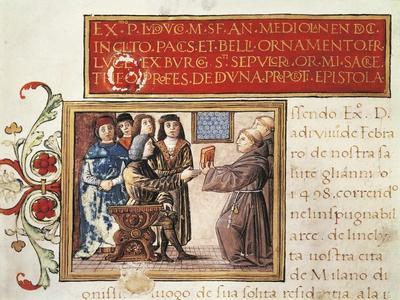 EX. P. LVDVC. M. SF. AN. MEDIOLANEN DVC.
INCLITO. PACIS. ET. BELL. ORNAMENTO. FR.
LVCE EX BVRG. Sᵗⁱ SEPVLCR. OR. MI. SACRE.
THEO. PROFES. DE DIVINA. PROPORT. EPISTOLA.
ssendo Ex. D.
adi viiii de Febra
ro de nostra sa
lute gli anni o
1498. correndo
nel inspugnabil
arce. de linclyta
uostra cita
de Milano di
gnissi luogo de sua solita residentia ala